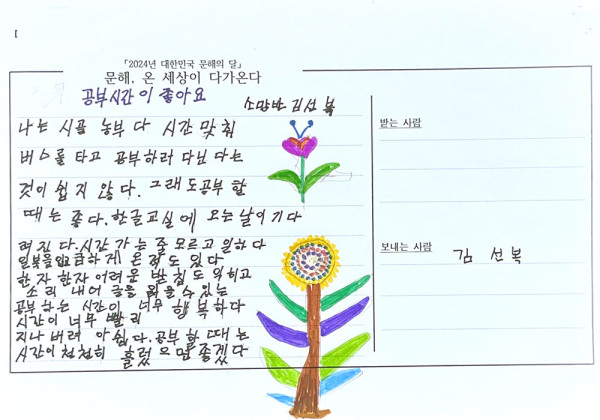 「2024년 대한민국 문해의 달」
문해, 온 세상이 다가온다
공부시간이 좋아요
소망반 김선복
나는 시골 농부다 시간 맞춰
버스를 타고 공부하러 다닌다는
것이 쉽지 않다. 그래도 공부할
때는 좋다. 한글교실에 오는날이 기다
려진다. 시간 가는 줄 모르고 일하다
일복을입고 급하게 온 적도 있다
한자 한자 어려운 받침도 익히고
소리 내어 글을 읽을 수 있는
공부하는 시간이 너무 행복하다
시간이 너무 빨리
지나버려 아쉽다. 공부할 때는
시간이 천천히 흘렀으면 좋겠다
받는 사람
보내는 사람
김선복